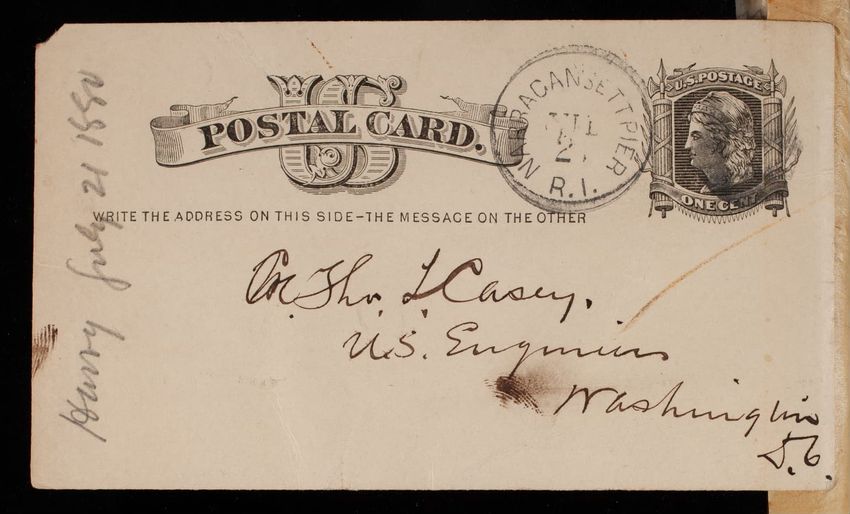 US
POSTAL CARD.
NARRAGANSETT PIER
JUL
21
R.I.
U.S. POSTAGE
ONE CENT
WRITE THE ADDRESS ON THIS SIDE-THE MESSAGE ON THE OTHER
Tho. L. Casey.
U.S. Engineers
Washington
D.C.
Harry July 21 1880